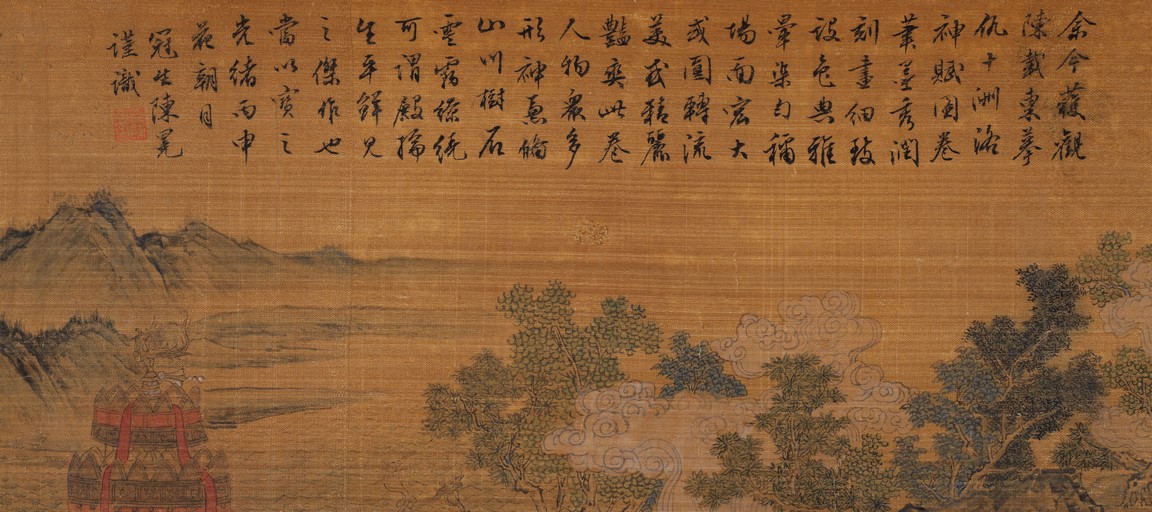 余今获觀
陳戴東摹
仇十洲洛
神賦圖卷
葉墨秀潤
刻畫細致
設色典雅
暈染勻稱
場面宏大
或圓轉流
美或精麗
豔爽此卷
人物眾多
形神意備
山川樹石
雲霧繚繞
可謂殿掄
生平鮮見
之傑作也
當以寶之
光緒丙申
花朝月
冠生陳冕
謹識